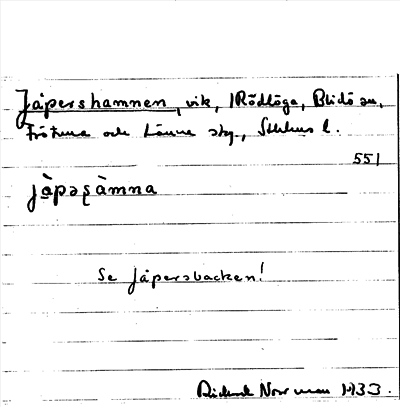 Jäpershamnen, vik, Rödlöga, Blidö sn,
Frötuna och Länna skg., Sthlms l.
551
jàpəʂàmna
Se Jäpersbacken!
Rickard Norrman 1933.